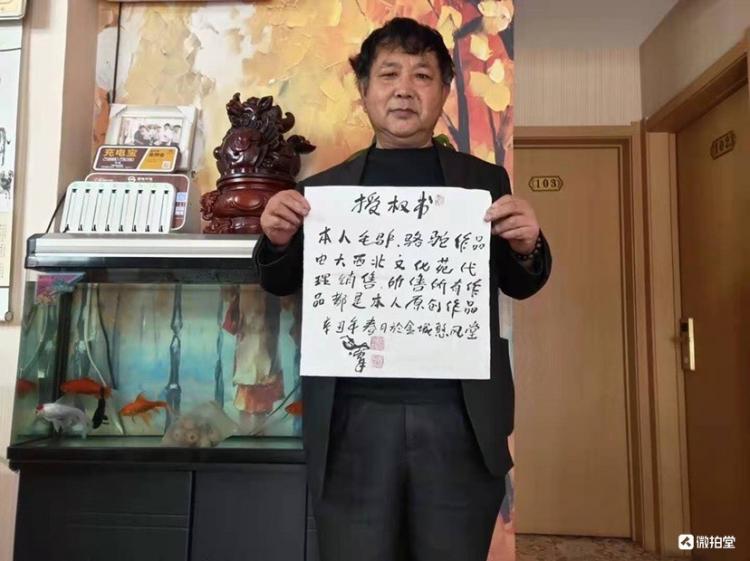 充电宝
103
102
授权书
本人毛驴、骆驼作品
由大西北文化苑代
理销售，所售所有作
品都是本人原创作品
辛丑年春日於金城憨风堂
微拍堂